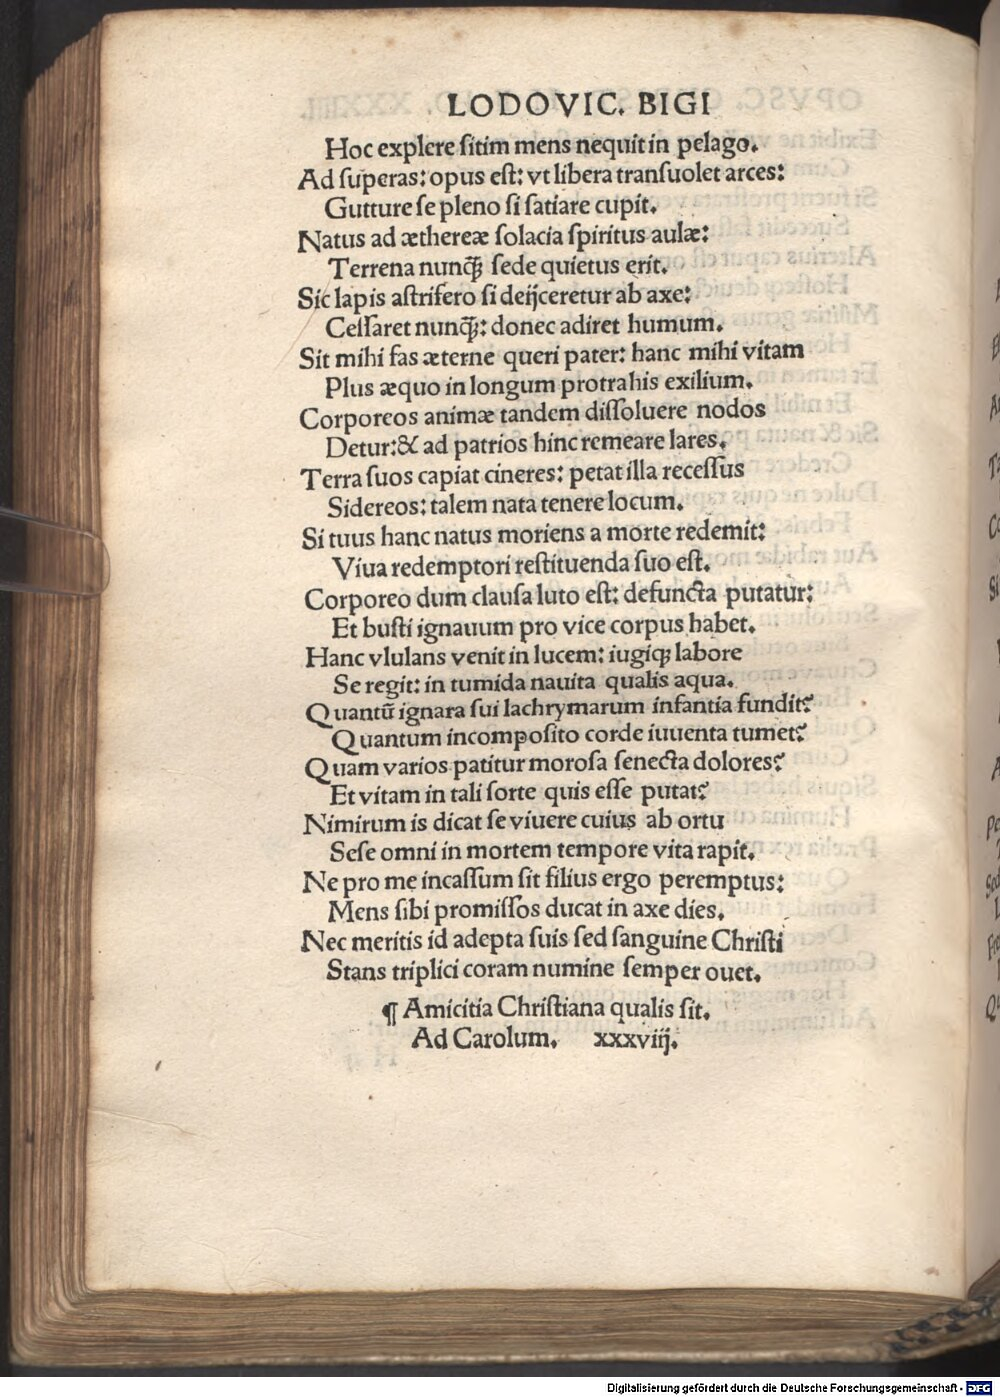 LODOVIC. BIGI
Hoc explere ſitim mens nequit in pelago.
Ad ſuperas: opus eſt: vt libera tranſuolet arces:
Gutture ſe pleno ſi ſatiare cupit.
Natus ad æthereæ ſolacia ſpiritus aulæ:
Terrena nunq̄ꝫ ſede quietus erit.
Sic lapis aſtrifero ſi deijceretur ab axe:
Ceſſaret nunq̄ꝫ: donec adiret humum.
Sit mihi fas æterne queri pater: hanc mihi vitam
Plus æquo in longum protrahis exilium.
Corporeos animæ tandem diſſoluere nodos
Detur: & ad patrios hinc remeare lares.
Terra ſuos capiat cineres: petat illa receſſus
Sidereos: talem nata tenere locum.
Si tuus hanc natus moriens a morte redemit:
Viua redemptori reſtituenda ſuo eſt.
Corporeo dum clauſa luto eſt: defuncta putatur:
Et buſti ignauum pro vice corpus habet.
Hanc vlulans venit in lucem: iugiqꝫ labore
Se regit: in tumida nauita qualis aqua.
Quantū ignara ſui lachrymarum infantia fundit?
Quantum incompoſito corde iuuenta tumet?
Quam varios patitur moroſa ſenecta dolores?
Et vitam in tali ſorte quis eſſe putat?
Nimirum is dicat ſe viuere cuius ab ortu
Seſe omni in mortem tempore vita rapit.
Ne pro me incaſſum ſit filius ergo peremptus:
Mens ſibi promiſſos ducat in axe dies.
Nec meritis id adepta ſuis ſed ſanguine Chriſti
Stans triplici coram numine ſemper ouet.
¶ Amicitia Chriſtiana qualis ſit.
Ad Carolum. xxxviij.
Digitalisierung gefördert durch die Deutsche Forschungsgemeinschaft - DFG